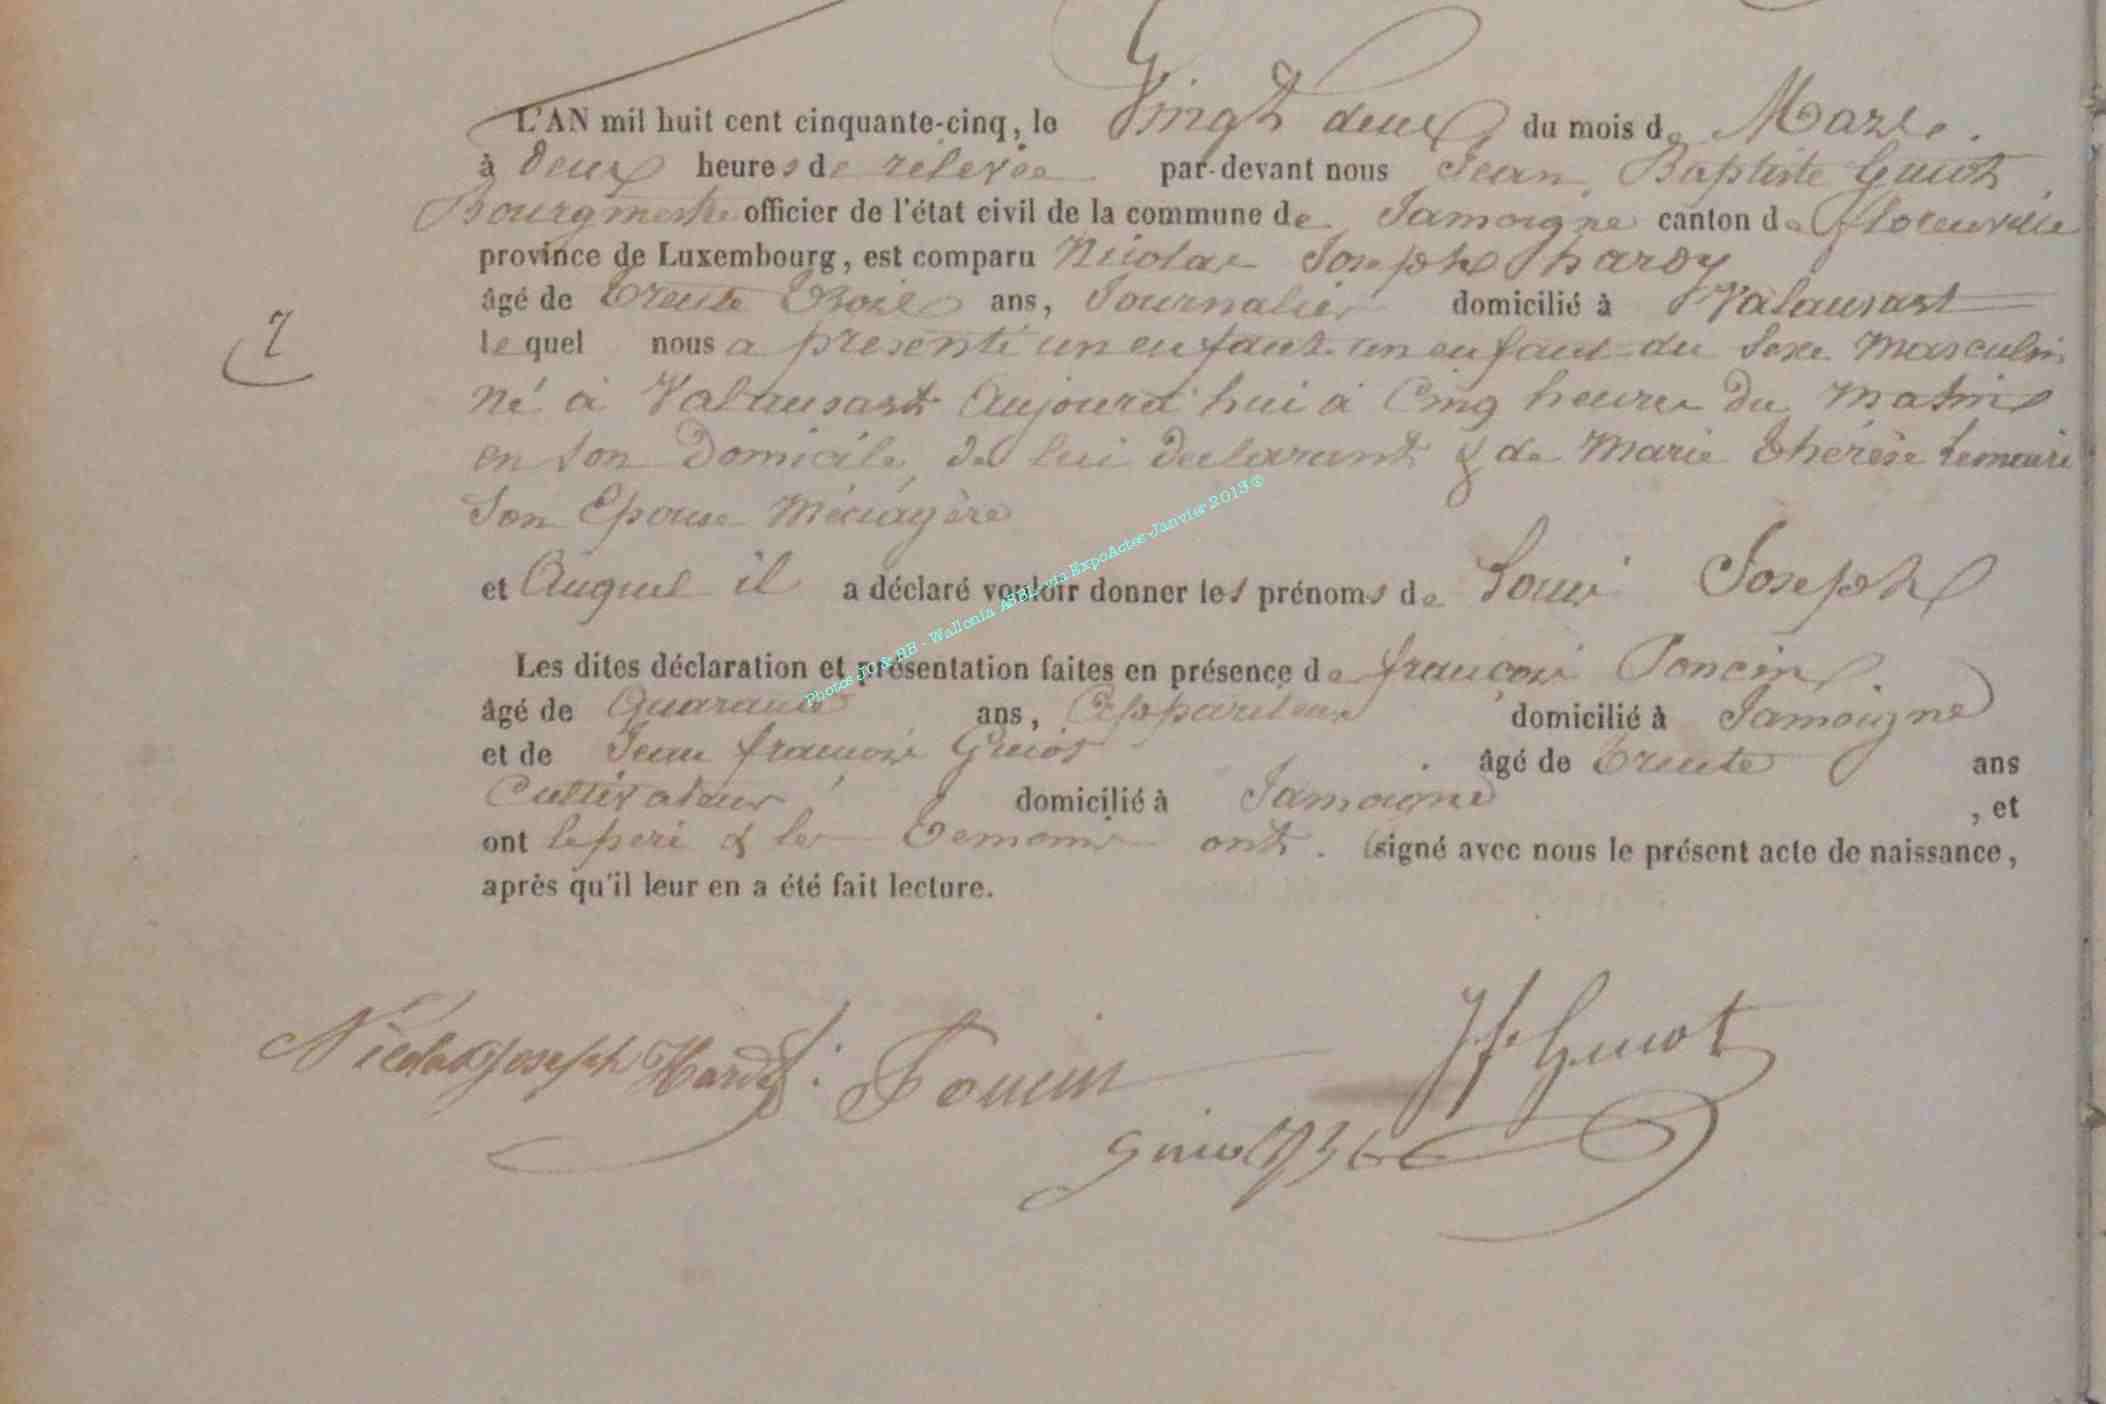 L'AN mil huit cent cinquante-cinq, le Vingt deux du mois de Mars.
à deux heures de relevée par-devant nous Jean Baptiste Guiot
Bourgmestre officier de l'état civil de la commune de Jamoigne canton de florenville
province de Luxembourg, est comparu Nicolas Joseph hardy
âgé de trente trois ans, Journalier domicilié à Valansart
7
le quel nous a presenté un enfant un enfant du Sexe Masculin
né à Valansart Aujourd'hui à Cinq heures du Matin
en son Domicile, de lui declarant & de Marie Thérèse
Son Epouse Ménagère
et Auquel il a déclaré vouloir donner les prénoms de Louis Joseph
Les dites déclaration et présentation faites en présence de françois Poncin
âgé de Quarante ans, Appariteur domicilié à Jamoigne
et de Jean françois Guiot âgé de trente ans
Cultivateur domicilié à Jamoigne , et
ont le pere & les temoins ont signé avec nous le présent acte de naissance,
après qu'il leur en a été fait lecture.
Nicolas Joseph Hardy Poncin Jf Guiot
Guiot
Photos JC & BB - Wallonia ASBL via ExpoActes-Janvier 2013 ©